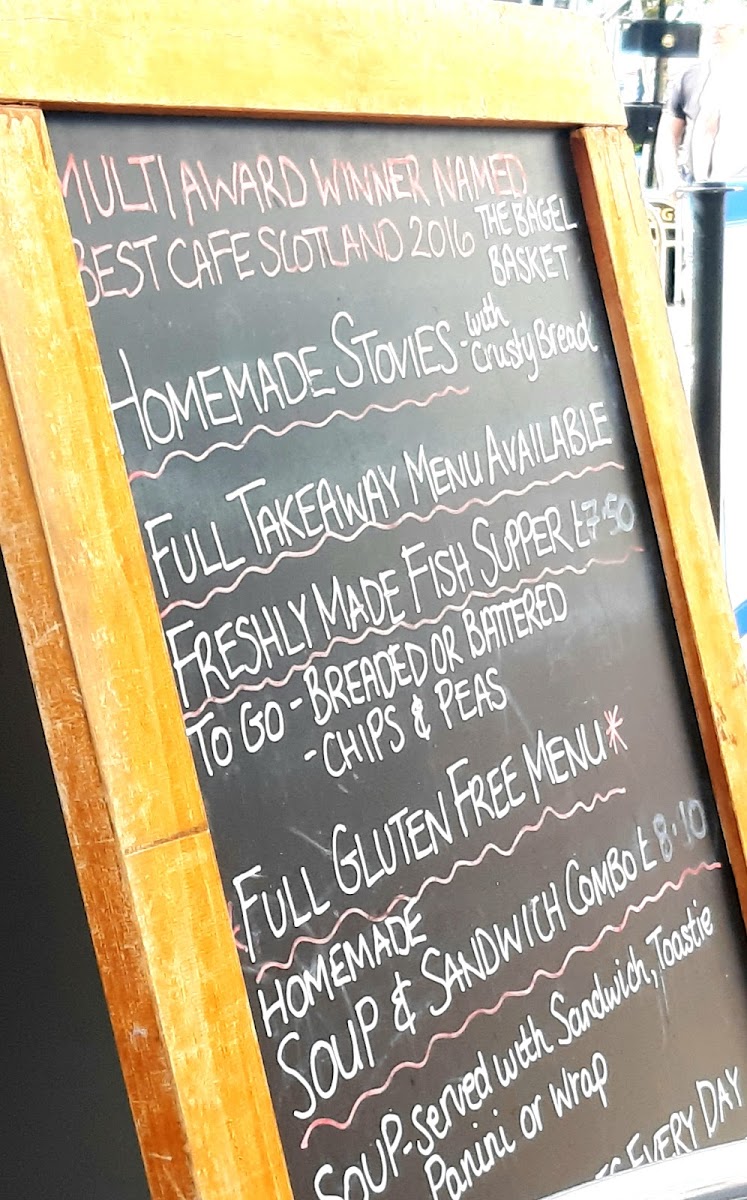 MULTI AWARD WINNER NAMED
BEST CAFE SCOTLAND 2016 THE BAGEL
BASKET
HOMEMADE STOVIES - with
Crusty Bread
FULL TAKEAWAY MENU AVAILABLE
FRESHLY MADE FISH SUPPER £7.50
TO GO - BREADED OR BATTERED
- CHIPS & PEAS
*FULL GLUTEN FREE MENU*
HOMEMADE
SOUP & SANDWICH COMBO £8.10
SOUP - Served with Sandwich, Toastie
Panini or Wrap
EVERY DAY